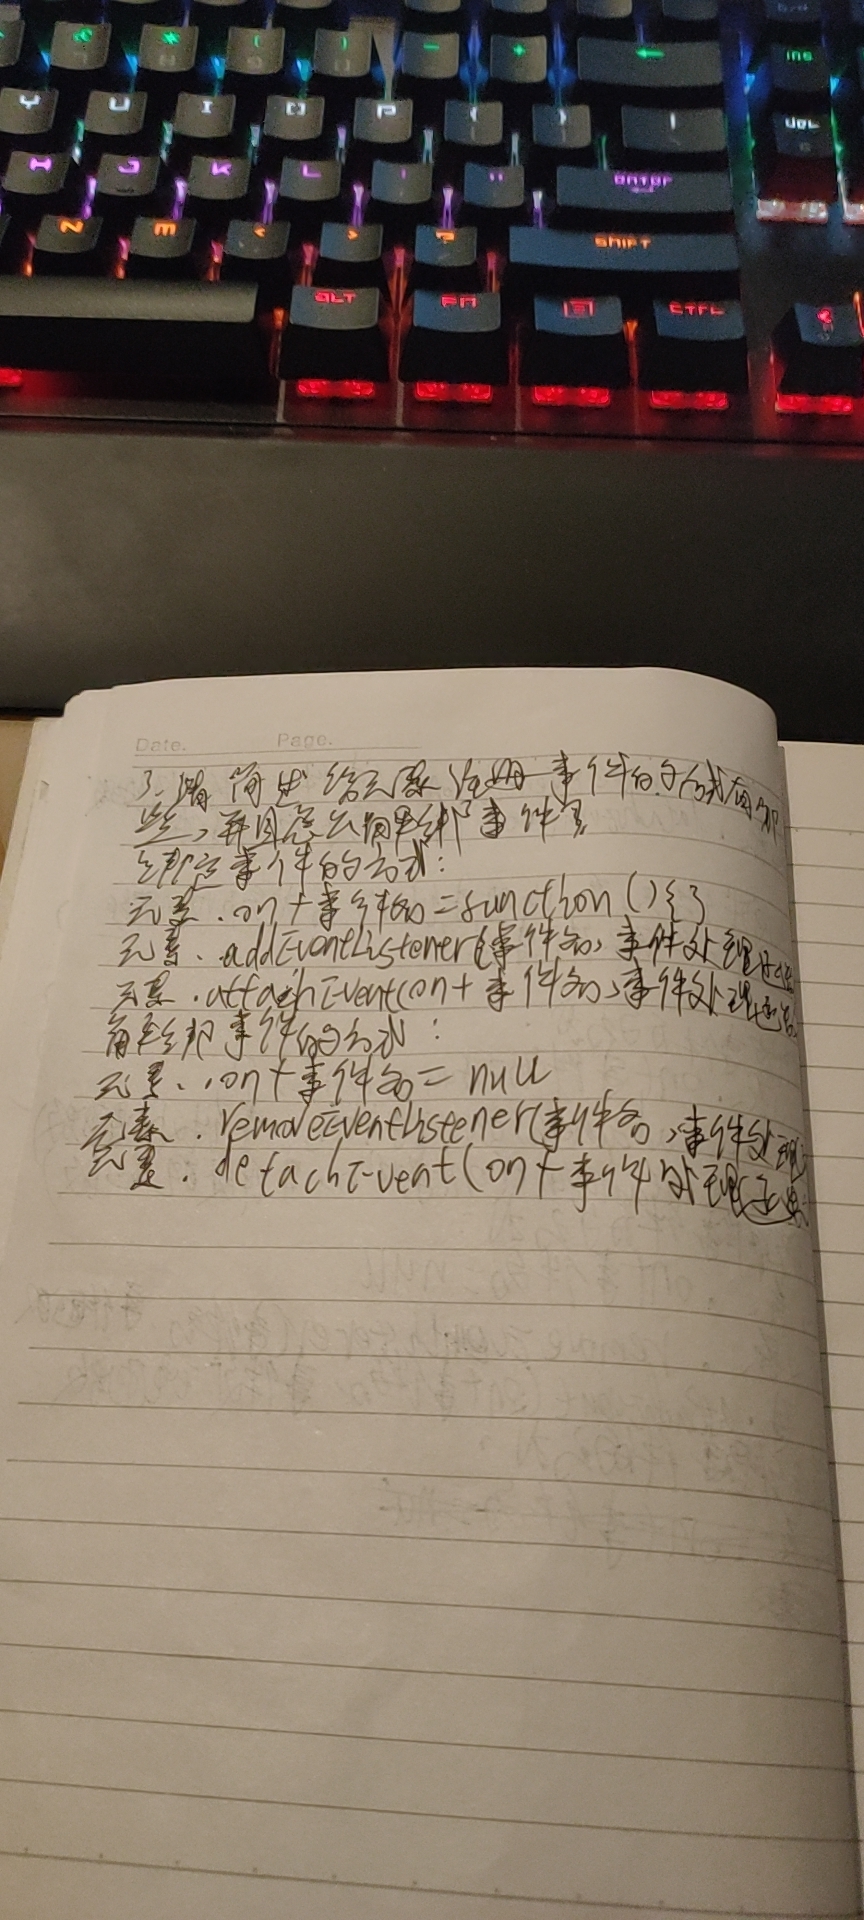 * ( ) - + ←
Y U I O P { } |
H J K L : " ENTER
N M < > ? SHIFT
ALT FN CTRL
ins
del
Date. Page.
3.请简述给元素注册事件的方式有哪
些,并且怎么解绑事件
绑定事件的方式:
元素.on+事件名=function(){}
元素.addEventListener(事件名,事件处理
元素.attachEvent(on+事件名,事件处理
解绑事件的方式:
元素.on+事件名=null
元素.removeEventListener(事件名,事件处理
元素.detachEvent(on+事件处理